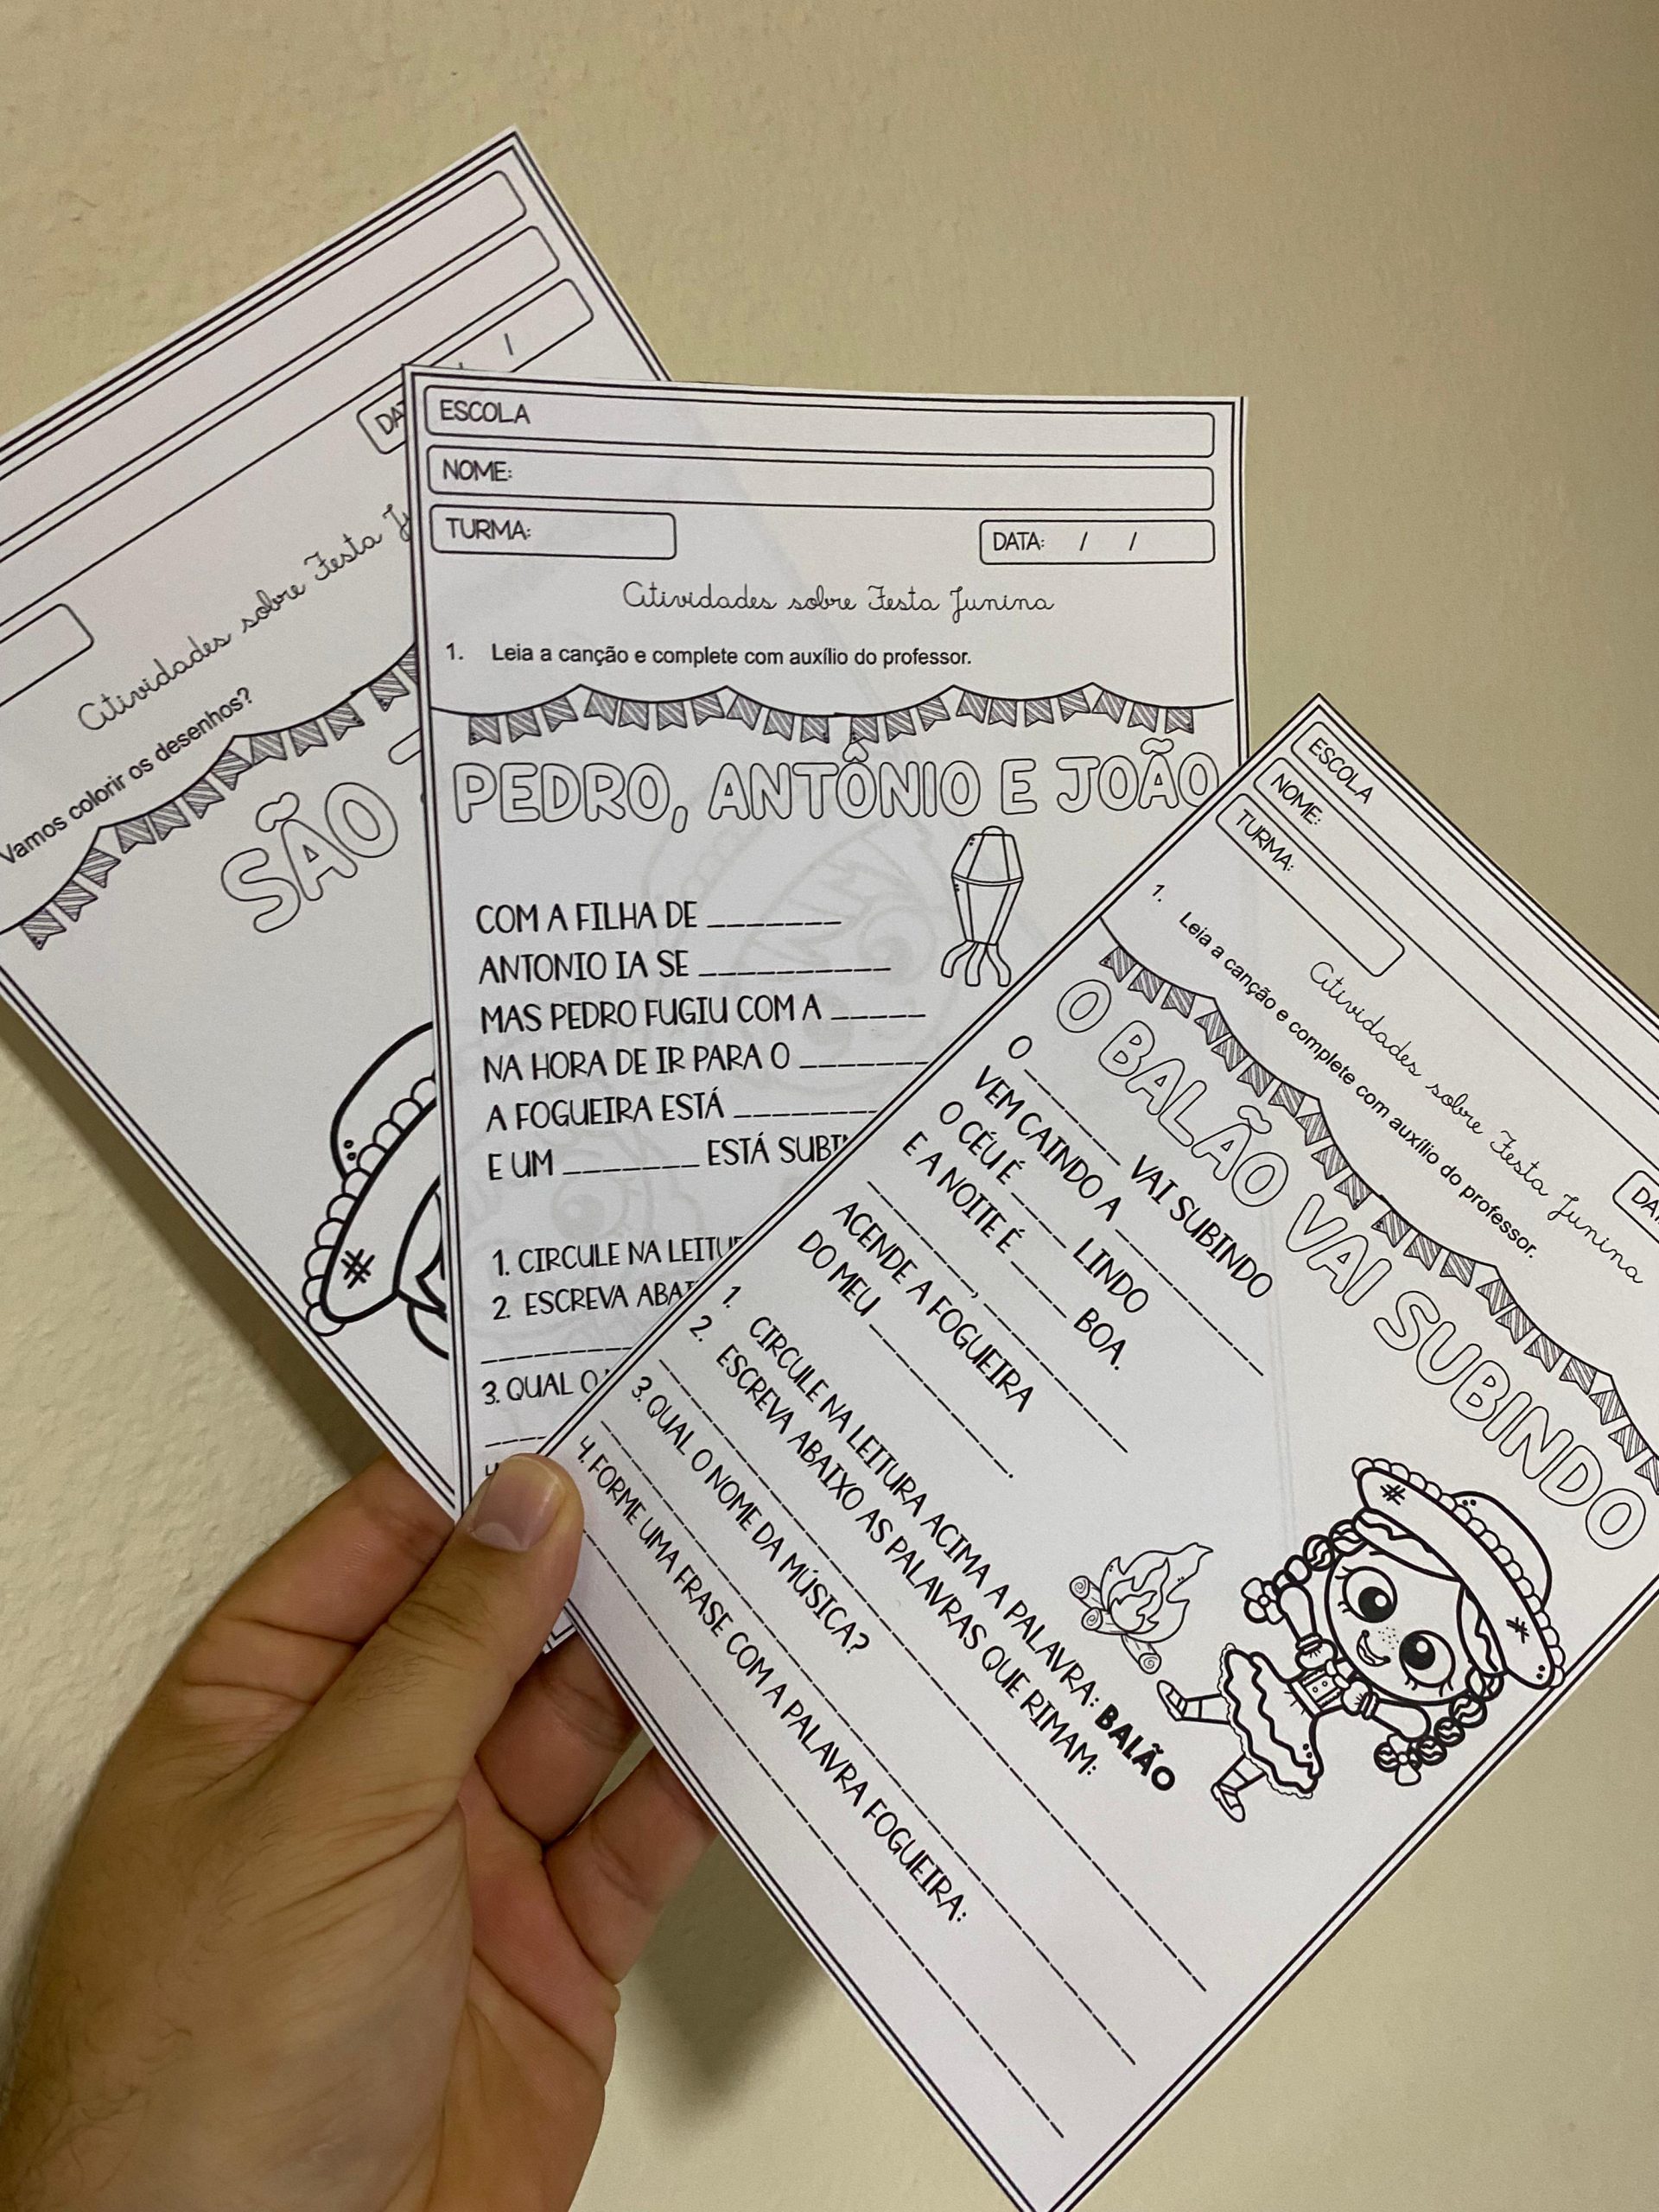 /
DA
Atividades sobre Festa
Vamos colorir os desenhos?
SÃO
ESCOLA
NOME:
TURMA:
DATA: / /
Atividades sobre Festa Junina
1. Leia a canção e complete com auxílio do professor.
PEDRO, ANTÔNIO E JOÃO
COM A FILHA DE _______
ANTONIO IA SE __________
MAS PEDRO FUGIU COM A _____
NA HORA DE IR PARA O _______
A FOGUEIRA ESTÁ ________
E UM _______ ESTÁ
1. CIRCULE NA
2. ESCREVA
3. QUAL O
ESCOLA
NOME:
TURMA:
DA
Atividades sobre Festa Junina
1. Leia a canção e complete com auxílio do professor.
O BALÃO VAI SUBINDO
O _______ VAI SUBINDO
VEM CAINDO A __________
O CÉU É ____ LINDO
E A NOITE É ____ BOA.
________, ________
ACENDE A FOGUEIRA
DO MEU __________.
1. CIRCULE NA LEITURA ACIMA A PALAVRA: BALÃO
2. ESCREVA ABAIXO AS PALAVRAS QUE RIMAM:
3. QUAL O NOME DA MÚSICA?
4. FORME UMA FRASE COM A PALAVRA FOGUEIRA: